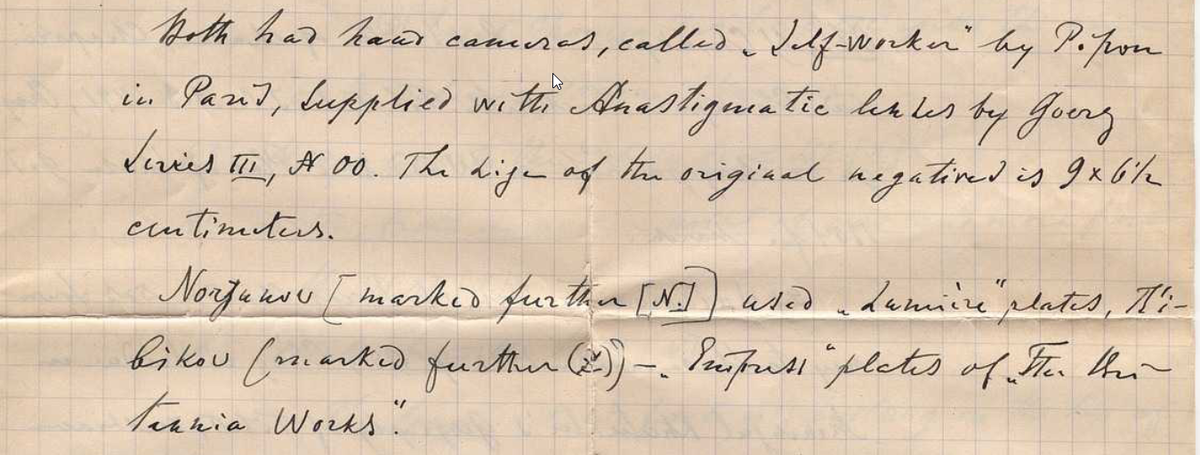 Both had hand cameras, called „Self-worker" by P.
in Paris, supplied with Anastigmatic lenses by Goerz
Series III, N 00. The size of the original negatives is 9 x 6½
centimeters.
Norzunov [marked further [N.]] used „Lumière" plates,
bikov (marked further ()) – „Empress" plates of „The Bri-
tannia Works".